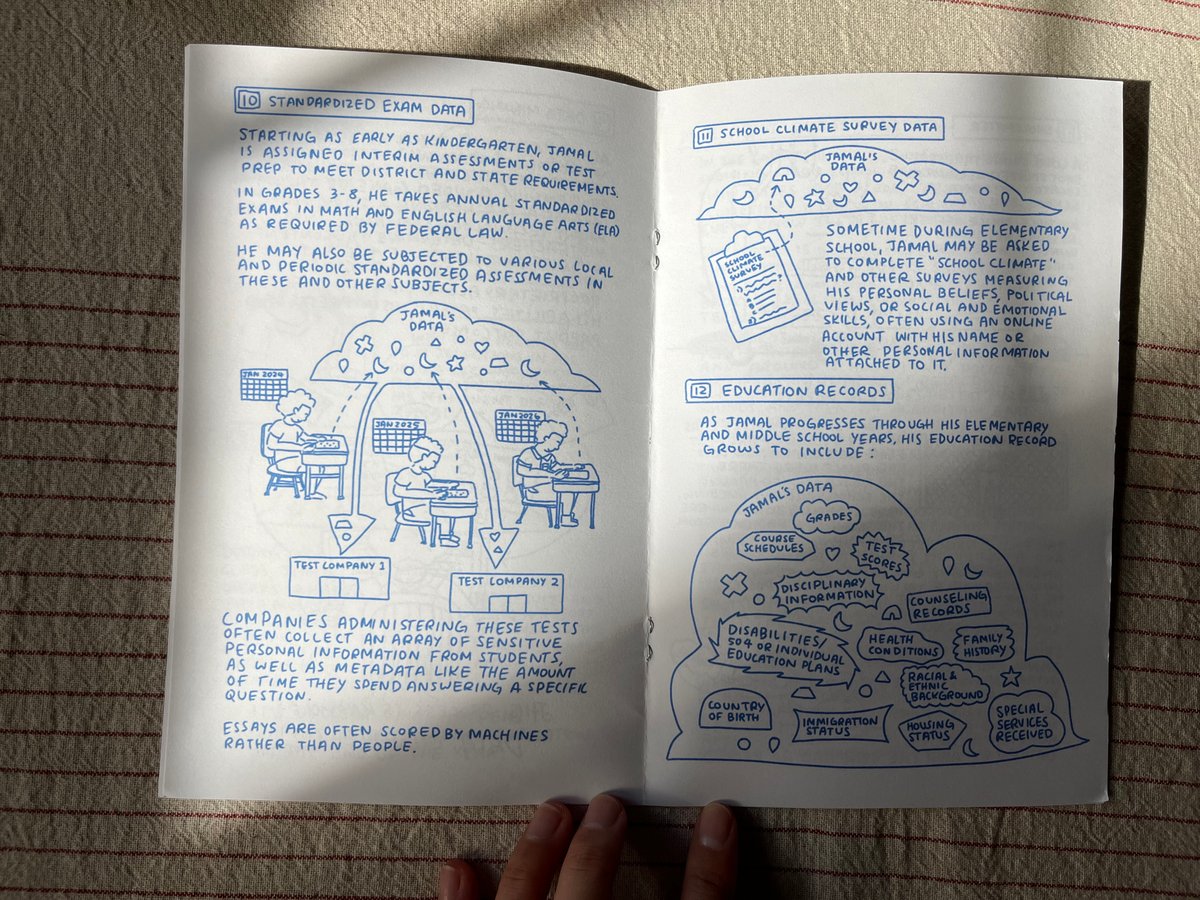 10 STANDARDIZED EXAM DATA
STARTING AS EARLY AS KINDERGARTEN, JAMAL
IS ASSIGNED INTERIM ASSESSMENTS OR TEST
PREP TO MEET DISTRICT AND STATE REQUIREMENTS.
IN GRADES 3-8, HE TAKES ANNUAL STANDARDIZED
EXAMS IN MATH AND ENGLISH LANGUAGE ARTS (ELA)
AS REQUIRED BY FEDERAL LAW.
HE MAY ALSO BE SUBJECTED TO VARIOUS LOCAL
AND PERIODIC STANDARDIZED ASSESSMENTS IN
THESE AND OTHER SUBJECTS.
JAMAL'S
DATA
JAN 2024
JAN 2025
JAN 2026
TEST COMPANY 1
TEST COMPANY 2
COMPANIES ADMINISTERING THESE TESTS
OFTEN COLLECT AN ARRAY OF SENSITIVE
PERSONAL INFORMATION FROM STUDENTS,
AS WELL AS METADATA LIKE THE AMOUNT
OF TIME THEY SPEND ANSWERING A SPECIFIC
QUESTION.
ESSAYS ARE OFTEN SCORED BY MACHINES
RATHER THAN PEOPLE.
11 SCHOOL CLIMATE SURVEY DATA
JAMAL'S
DATA
SCHOOL
CLIMATE
SURVEY
SOMETIME DURING ELEMENTARY
SCHOOL, JAMAL MAY BE ASKED
TO COMPLETE "SCHOOL CLIMATE"
AND OTHER SURVEYS MEASURING
HIS PERSONAL BELIEFS, POLITICAL
VIEWS, OR SOCIAL AND EMOTIONAL
SKILLS, OFTEN USING AN ONLINE
ACCOUNT WITH HIS NAME OR
OTHER PERSONAL INFORMATION
ATTACHED TO IT.
12 EDUCATION RECORDS
AS JAMAL PROGRESSES THROUGH HIS ELEMENTARY
AND MIDDLE SCHOOL YEARS, HIS EDUCATION RECORD
GROWS TO INCLUDE:
JAMAL'S DATA
GRADES
COURSE
SCHEDULES
TEST
SCORES
DISCIPLINARY
INFORMATION
COUNSELING
RECORDS
DISABILITIES/
504 OR INDIVIDUAL
EDUCATION PLANS
HEALTH
CONDITIONS
FAMILY
HISTORY
RACIAL &
ETHNIC
BACKGROUND
COUNTRY
OF BIRTH
IMMIGRATION
STATUS
HOUSING
STATUS
SPECIAL
SERVICES
RECEIVED